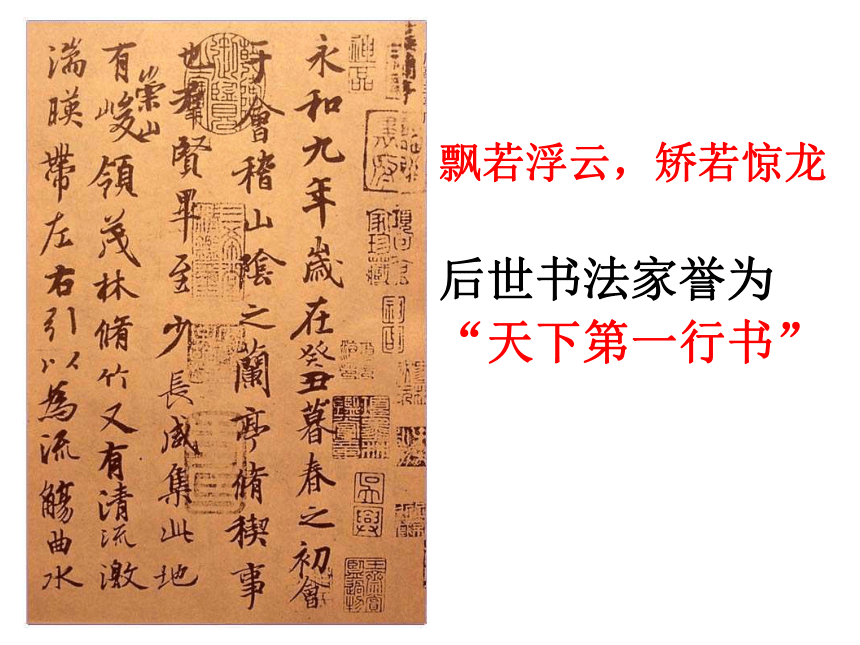 永和九年歲在癸丑暮春之初會
于會稽山陰之蘭亭脩稧事
也羣賢畢至少長咸集此地
有崇山峻領茂林脩竹又有清流激
湍暎帶左右引以為流觴曲水
飘若浮云，矫若惊龙
后世书法家誉为
“天下第一行书”